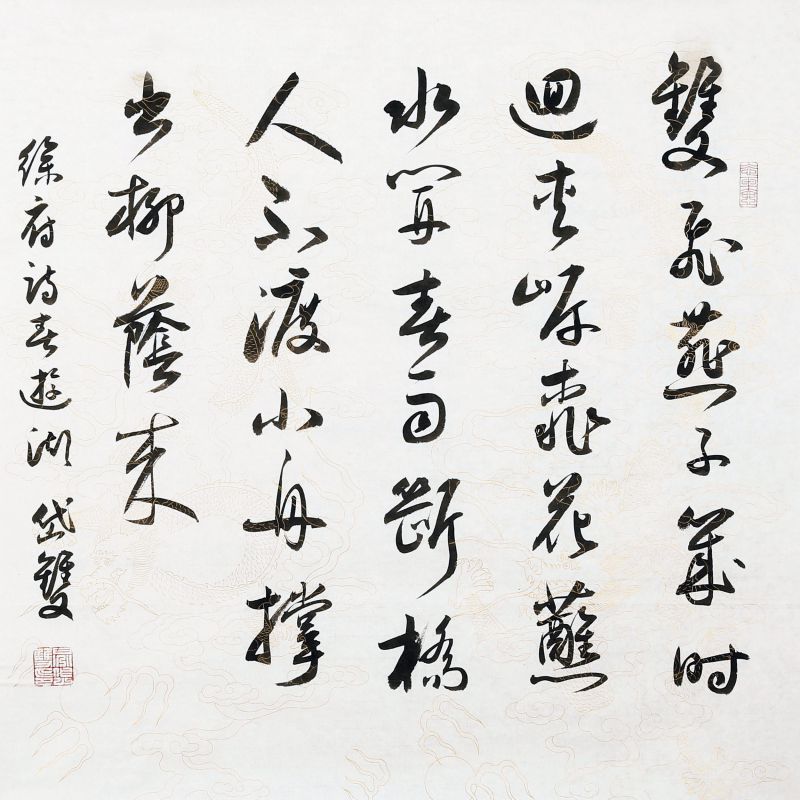 雙飛燕子幾时
迴夾岸桃花蘸
水開春雨斷橋
人不渡小舟撐
出柳蔭來
徐府詩春遊湖 岱雙